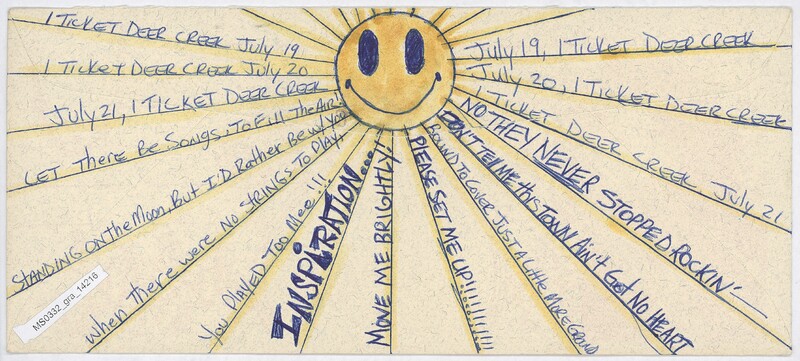 1 TICKET DEER CREEK July 19
1 TICKET DEER CREEK July 20
July 21, 1 TICKET DEER CREEK
LET THERE BE SONGS, TO FILL THE AIR!
STANDING ON the MOON, BUT I'D RATHER BE W/ YOU
when THERE WERE NO STRINGS TO PLAY,
You PLAYED TOO Mee!!!
INSPIRATION....
MOVE ME BRIGHTLY!
PLEASE SET ME UP!!!!!!!!!!!
BOUND TO COVER JUST A LITTLE MORE GROUND
DON'T TELL ME this TOWN AIN'T Got NO HEART
NO THEY NEVER STOPPED ROCKIN'—
1 TICKET DEER CREEK July 21
July 20, 1 TICKET DEER CREEK
July 19, 1 TICKET DEER CREEK
MS0332_gra_14216